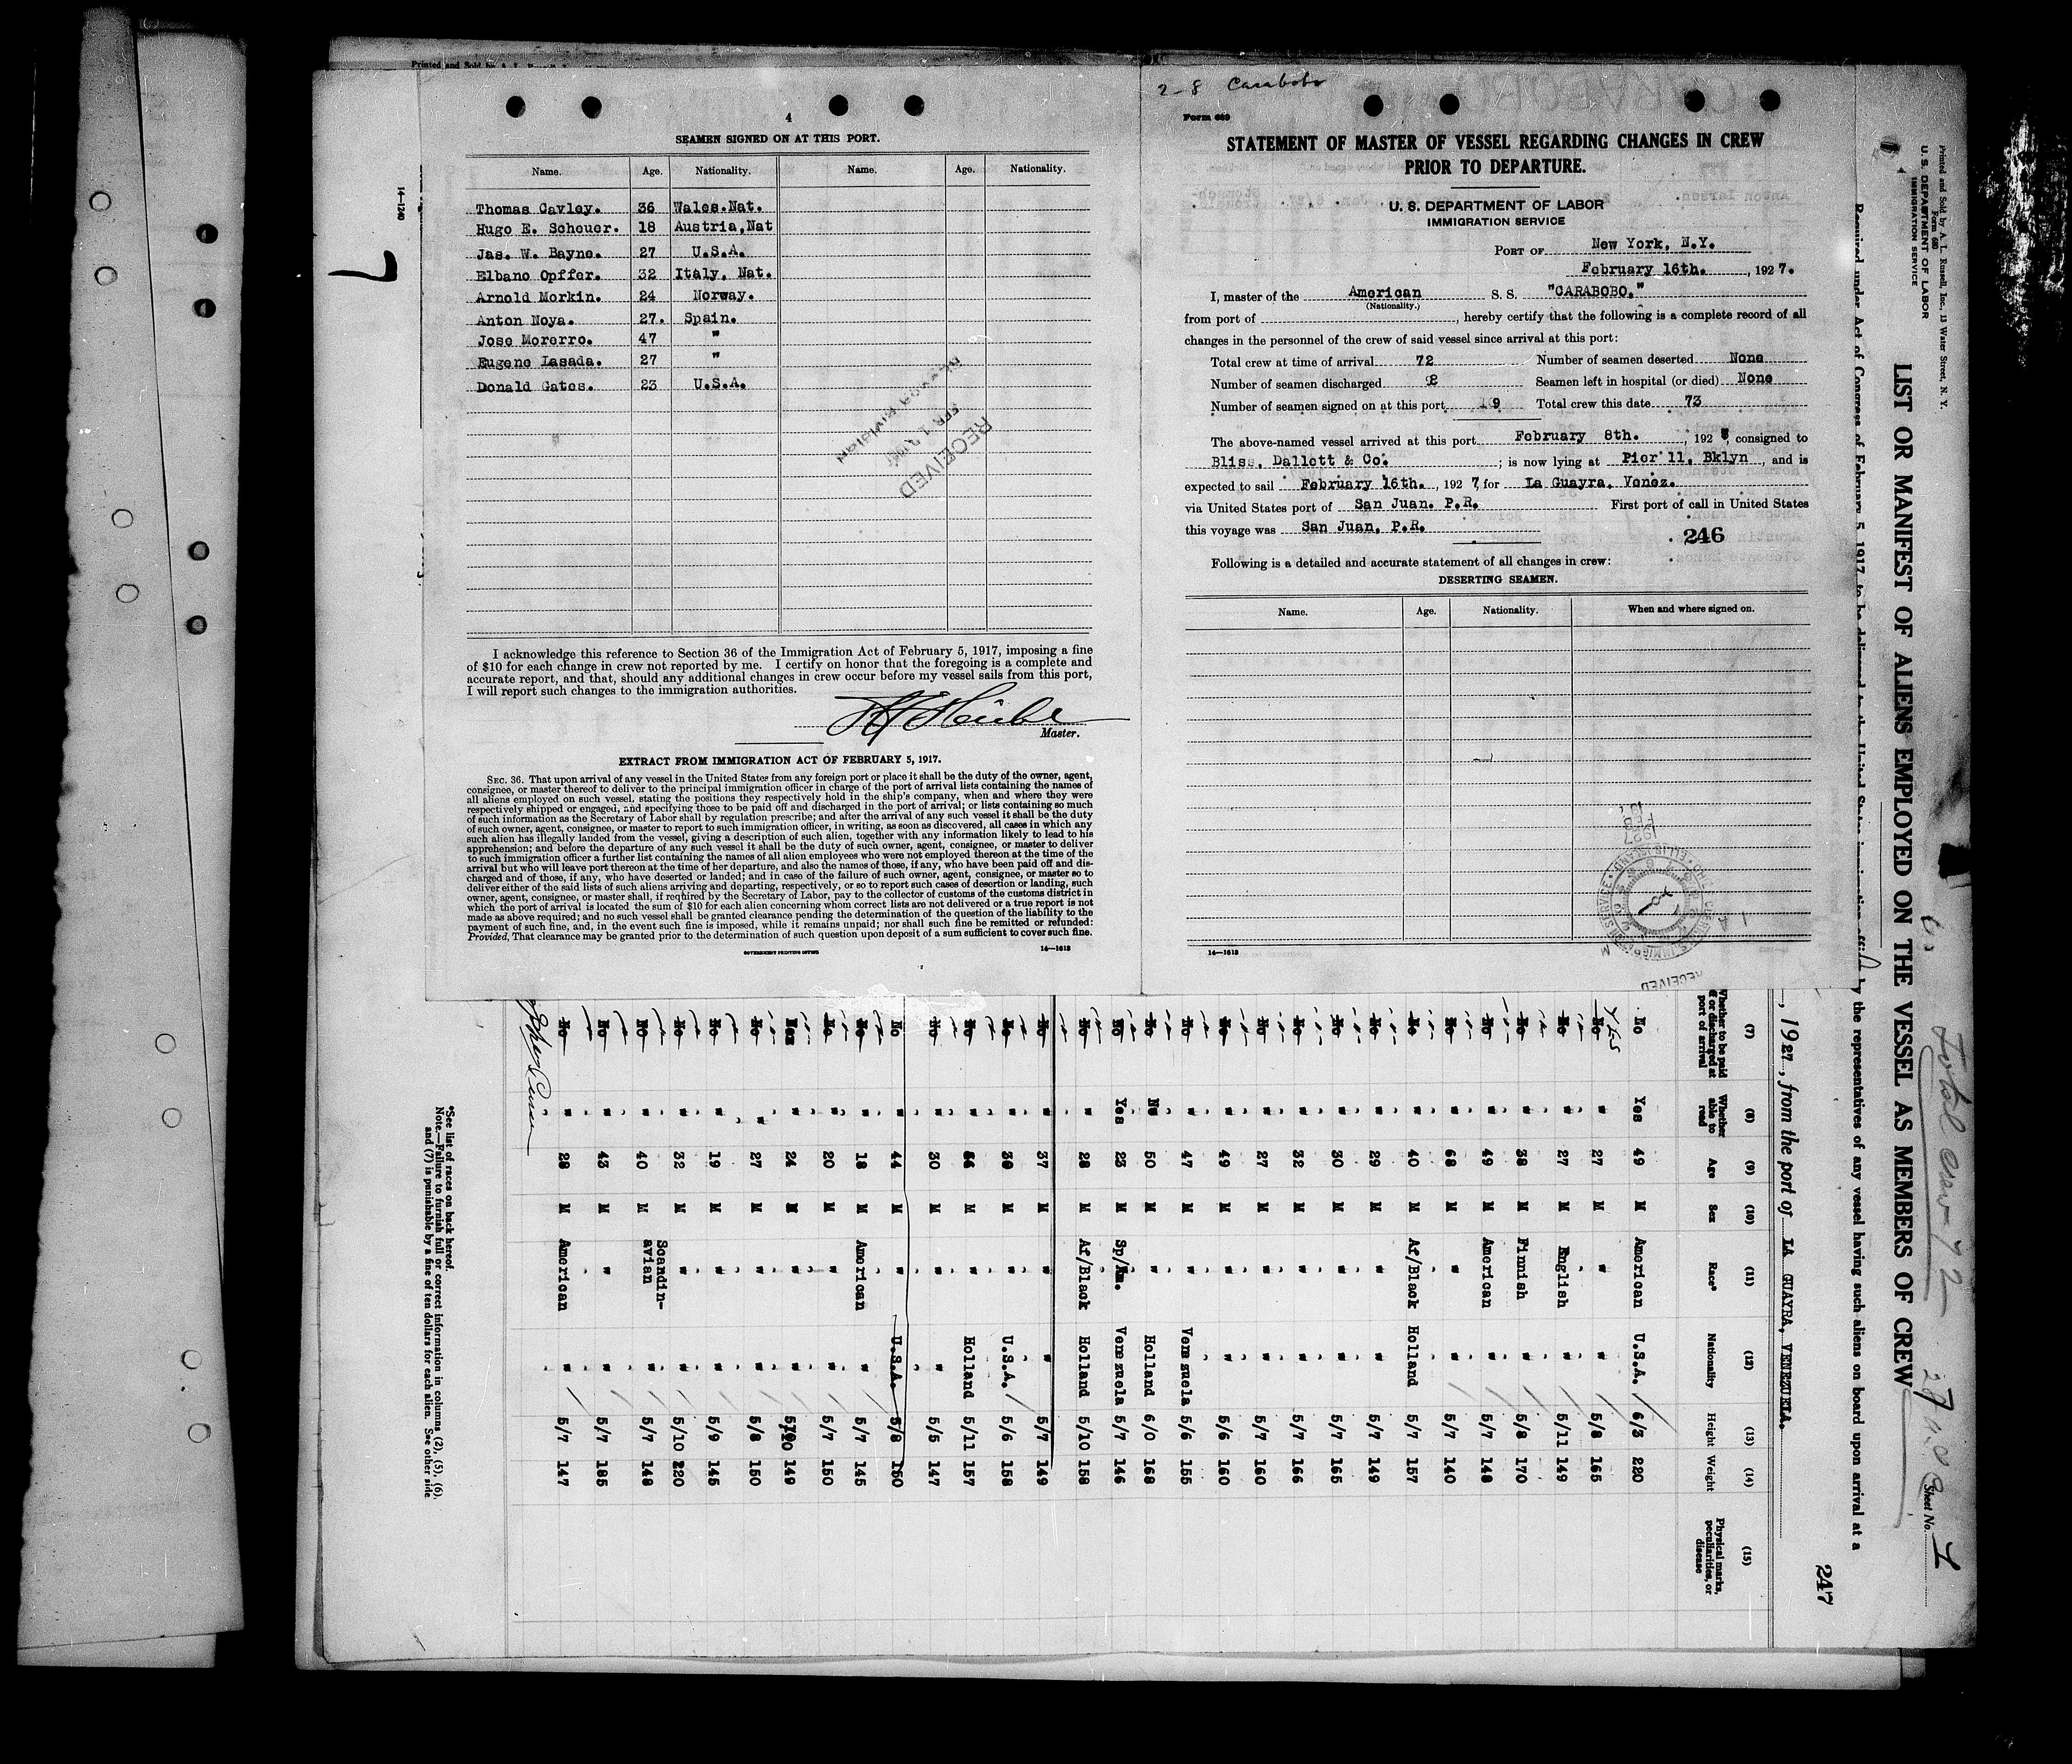 Printed and Sold by A. L.
4
SEAMEN SIGNED ON AT THIS PORT.
Name. Age. Nationality. Name. Age. Nationality.
Thomas Cavley. 36 Wales.Nat.
Hugo E. Scheuer. 18 Austria,Nat
Jas. W. Bayne. 27 U.S.A.
Elbano Opffer. 32 Italy. Nat.
Arnold Morkin. 24 Norway.
Anton Noya. 27. Spain.
Jose Morerro. 47 "
Eugene Lasada. 27 "
Donald Gates. 23 U.S.A.
RECEIVED
I acknowledge this reference to Section 36 of the Immigration Act of February 5, 1917, imposing a fine
of $10 for each change in crew not reported by me. I certify on honor that the foregoing is a complete and
accurate report, and that, should any additional changes in crew occur before my vessel sails from this port,
I will report such changes to the immigration authorities.
Master.
EXTRACT FROM IMMIGRATION ACT OF FEBRUARY 5, 1917.
SEC. 36. That upon arrival of any vessel in the United States from any foreign port or place it shall be the duty of the owner, agent,
consignee, or master thereof to deliver to the principal immigration officer in charge of the port of arrival lists containing the names of
all aliens employed on such vessel, stating the positions they respectively hold in the ship's company, when and where they were
respectively shipped or engaged, and specifying those to be paid off and discharged in the port of arrival; or lists containing so much
of such information as the Secretary of Labor shall by regulation prescribe; and after the arrival of any such vessel it shall be the duty
of such owner, agent, consignee, or master to report to such immigration officer, in writing, as soon as discovered, all cases in which any
such alien has illegally landed from the vessel, giving a description of such alien, together with any information likely to lead to his
apprehension; and before the departure of any such vessel it shall be the duty of such owner, agent, consignee, or master to deliver
to such immigration officer a further list containing the names of all alien employees who were not employed thereon at the time of the
arrival but who will leave port thereon at the time of her departure, and also the names of those, if any, who have been paid off and dis-
charged and of those, if any, who have deserted or landed; and in case of the failure of such owner, agent, consignee, or master so to
deliver either of the said lists of such aliens arriving and departing, respectively, or so to report such cases of desertion or landing, such
owner, agent, consignee, or master shall, if required by the Secretary of Labor, pay to the collector of customs of the customs district in
which the port of arrival is located the sum of $10 for each alien concerning whom correct lists are not delivered or a true report is not
made as above required; and no such vessel shall be granted clearance pending the determination of the question of the liability to the
payment of such fine, and, in the event such fine is imposed, while it remains unpaid; nor shall such fine be remitted or refunded:
Provided, That clearance may be granted prior to the determination of such question upon deposit of a sum sufficient to cover such fine.
14—1618
GOVERNMENT PRINTING OFFICE
14-1240
2-8 Carabobo
Form 689
STATEMENT OF MASTER OF VESSEL REGARDING CHANGES IN CREW
PRIOR TO DEPARTURE.
U. S. DEPARTMENT OF LABOR
IMMIGRATION SERVICE
PORT OF New York, N.Y.
February 16th. , 1927.
I, master of the American S. S. "CARABOBO,"
(Nationality.)
from port of , hereby certify that the following is a complete record of all
changes in the personnel of the crew of said vessel since arrival at this port:
Total crew at time of arrival 72 Number of seamen deserted None
Number of seamen discharged 8 Seamen left in hospital (or died) None
Number of seamen signed on at this port 9 Total crew this date 73
The above-named vessel arrived at this port February 8th. , 192 , consigned to
Bliss, Dallett & Co. ; is now lying at Pier 11, Bklyn , and is
expected to sail February 16th. , 1927, for La Guayra, Venez.
via United States port of San Juan. P.R. First port of call in United States
this voyage was San Juan, P.R.
246
Following is a detailed and accurate statement of all changes in crew:
DESERTING SEAMEN.
Name. Age. Nationality. When and where signed on.
14—1618
RECEIVED
Printed and Sold by A. L. Russell, Inc., 13 Water Street, N. Y.
Form 680
U. S. DEPARTMENT OF LABOR
IMMIGRATION SERVICE
Total crew 72
Sheet No. 1
LIST OR MANIFEST OF ALIENS EMPLOYED ON THE VESSEL AS MEMBERS OF CREW
Required under Act of Congress of February 5, 1917, to be delivered to the United States by the representatives of any vessel having such aliens on board upon arrival at a
247
, 1927, from the port of LA GUAYRA, VENEZUELA.
(7) (8) (9) (10) (11) (12) (13) (14) (15)
Whether to be paid off or discharged at port of arrival Whether able to read Age Sex Race* Nationality Height Weight Physical marks, peculiarities, or disease
No Yes 49 M American U.S.A. 6/3 220
No Yes " 27 M " " 5/8 165
No " 27 M English " 5/11 149
No " 38 M Finnish " 5/8 170
No " 49 M American " 5/7 148
No " 68 M " " 5/7 140
No " 40 M Af/Black Holland 5/7 157
No " 29 M " " 5/7 149
No " 30 M " " 5/7 165
No " 32 M " " 5/7 166
No " 27 M " " 5/7 160
No " 49 M " " 5/6 160
No " 47 M " Venezuela 5/6 155
No No 50 M " Holland 6/0 168
No Yes 23 M Sp/Am. Venezuela 5/7 146
No " 28 M Af/Black Holland 5/10 158
No " 37 M " " 5/7 149
No " 30 M " U.S.A. 5/6 158
No " M " Holland 5/11 157
No " 30 M " " 5/5 147
No " 44 M " U.S.A. 5/8 150
No " 18 M American " 5/7 145
No " 20 M " " 5/7 150
" 24 M " " 149
No " 27 M " " 5/8 150
No " 19 M " " 5/9 145
No " 32 M " " 5/10 220
No " 40 M Scandinavian " 5/7 148
No " 43 M " " 5/7 185
No " 28 M American " 5/7 147
*See list of races on back hereof.
Note.—Failure to furnish full or correct information in columns (2), (5), (6),
and (7) is punishable by a fine of ten dollars for each alien. See other side